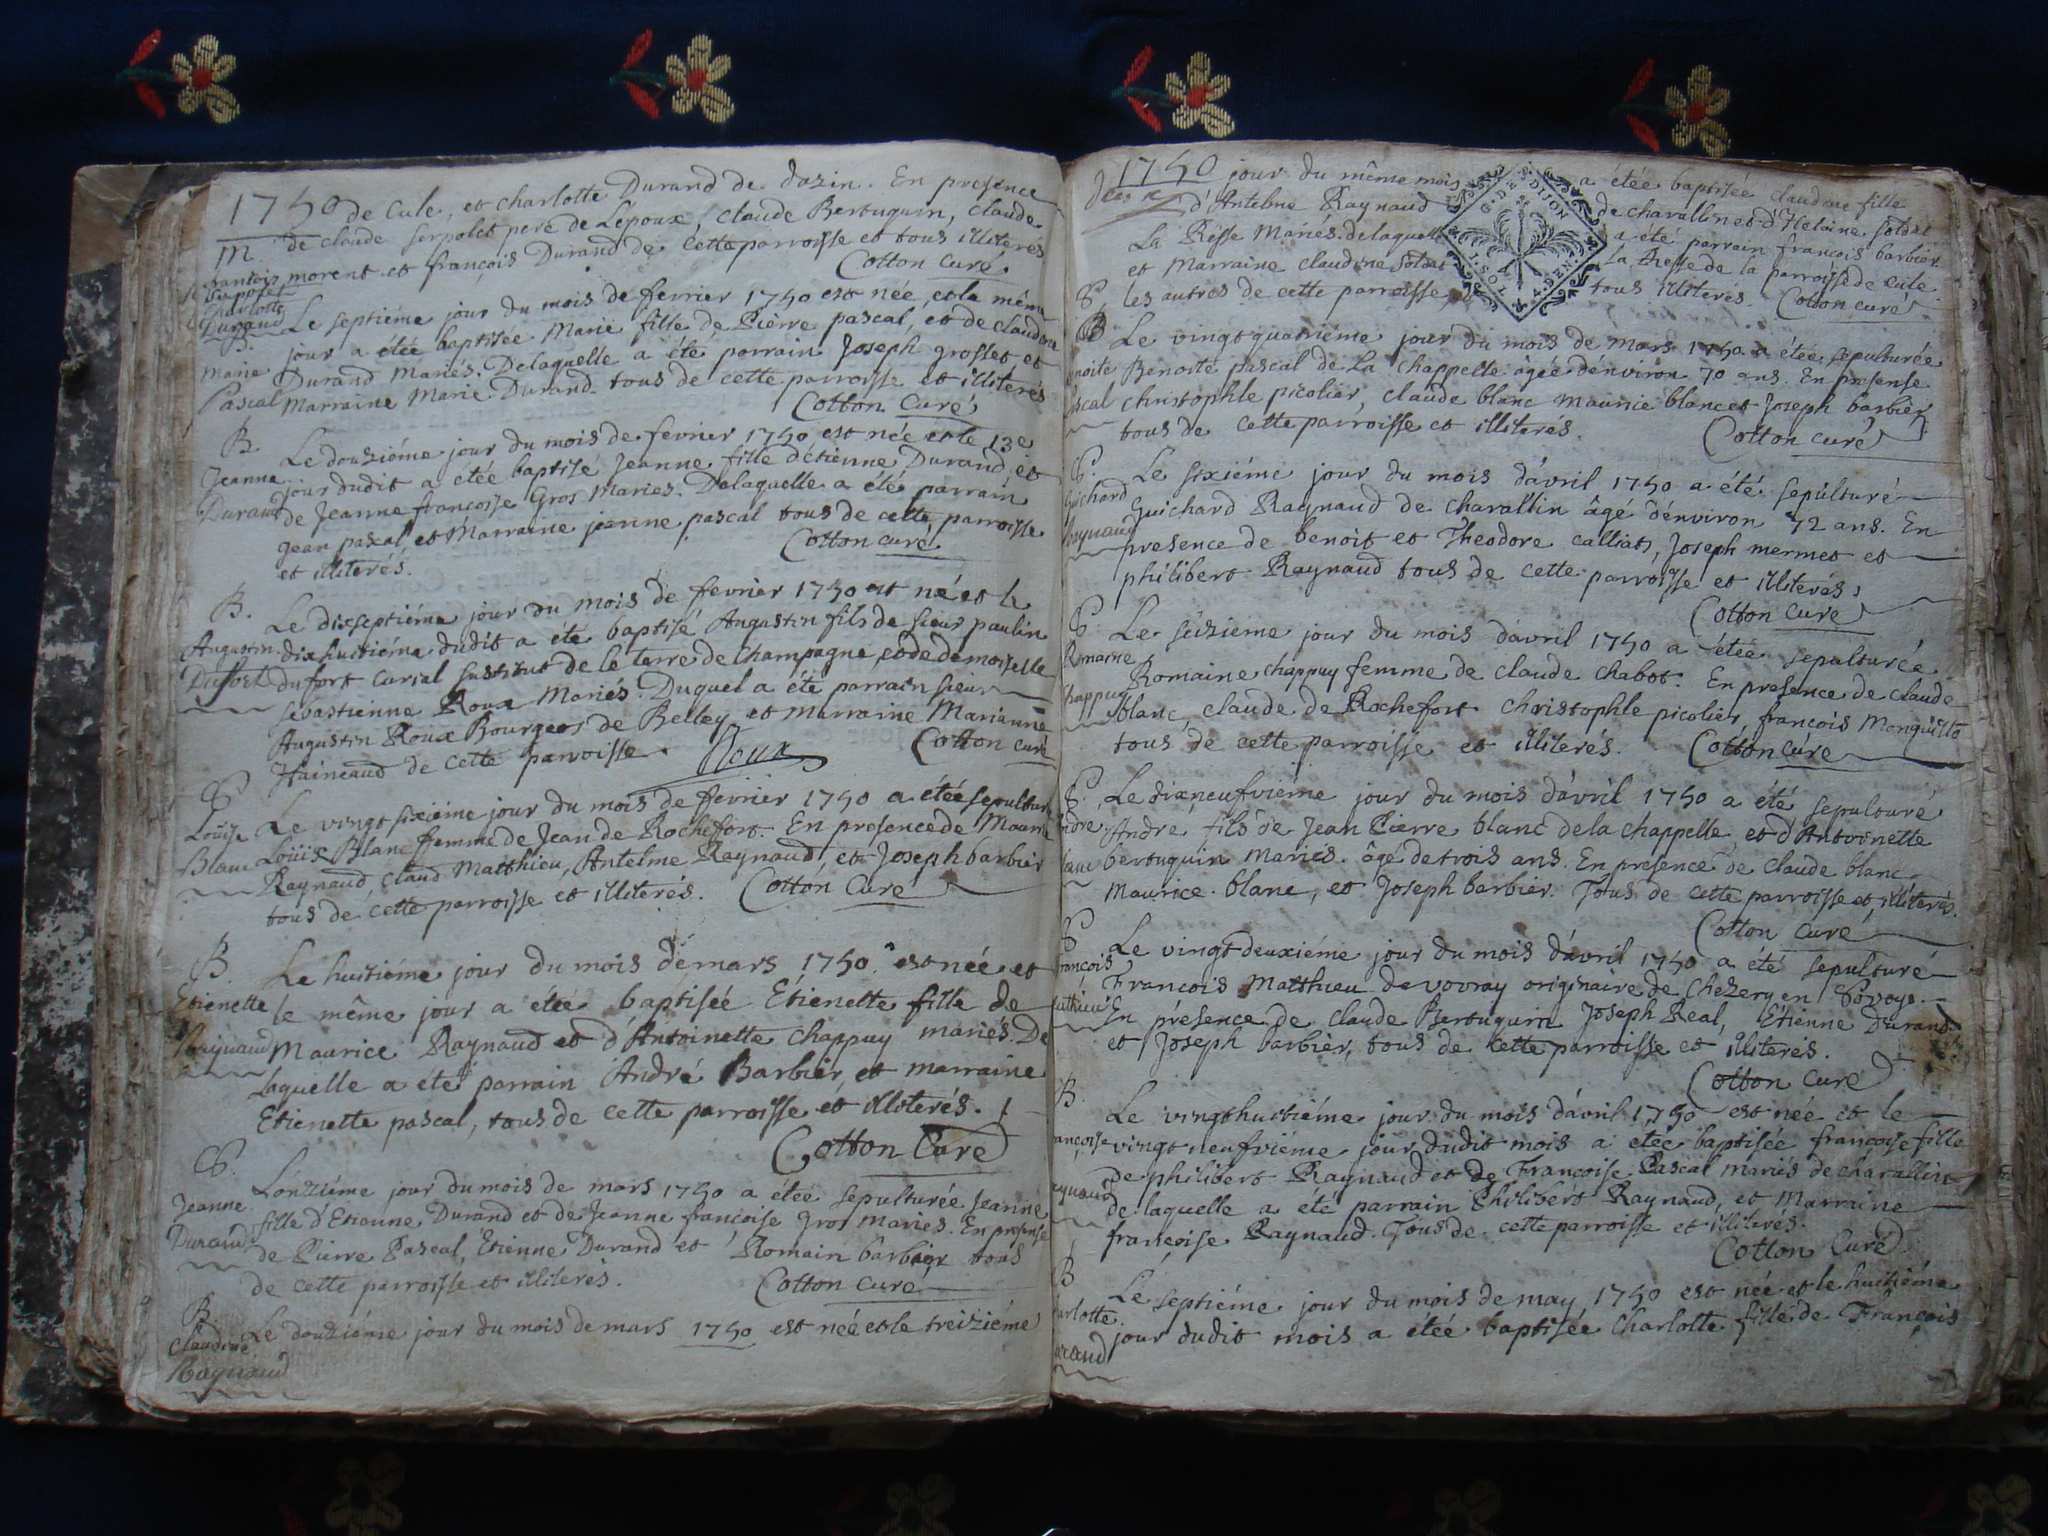 1750 de Cule, et charlotte Durand de dazin. En presence
M. de claude serpolet pere de Lépoux, claude Bertuquin, claude
morent et françois Durand de cette parroisse et tous illiterés
Charlotte
Durand
Cotton curé
Le septiéme jour du mois de fevrier 1750 est née, et le même
B. jour a étée baptisée Marie fille de Pierre pascal, et de claudine
Marie Durand Mariés. Delaquelle a été parrain Joseph grosset et
Pascal Marraine Marie Durand tous de cette parroisse et illiterés
Cotton Curé
B. Le douziéme jour du mois de fevrier 1750 est née et le 13e
Jeanne jour dudit a étée baptisé Jeanne fille d'étienne Durand et
Durand de Jeanne françoise Gros Mariés. Delaquelle a été parrain
Jean pascal et Marraine jeanne pascal tous de cette parroisse
et illiterés.
Cotton curé
B. Le dixseptiéme jour du mois de fevrier 1750 est né et le
Augustin dixhuitiéme dudit a été baptisé Augustin fils de sieur paulin
Dufort dufort curial sustitut de le terre de Champagne et de demoiselle
sebastienne Roux Mariés. Duquel a éte parrain sieur
Augustin Roux Bourgeos de Belley et marraine Marianne
Haineaud de cette parroisse. Roux Cotton curé
S. Le vingt sixiéme jour du mois de fevrier 1750 a étée sepulturée
Loüise Loüise Blanc femme de Jean de Rochefort. En presence de Maurice
Blanc Raynaud, claud Matthieu, Antelme Raynaud, et Joseph barbier
tous de cette parroisse et illiterés. Cotton Curé
B. Le huitiéme jour du mois de mars 1750. est née et
Etienette le même jour a étée baptisée Etienette fille de
Raynaud Maurice Raynaud et d'Antoinette Chappuy mariés. De
laquelle a été parrain André Barbier, et marraine
Etienette pascal, tous de cette parroisse et illiterés.
Cotton Curé
S. L'onziéme jour du mois de mars 1750 a étée sepulturée Jeanne
Jeanne fille d'Etienne Durand et de Jeanne françoise Gros Mariés. En presense
Durand de Pierre Pascal, Etienne Durand et Romain barbier tous
de cette parroisse et illiterés. Cotton curé
B. Le douziéme jour du mois de mars 1750 est née et le treiziéme
Claudine
Raynaud
1750 jour du même mois a étée baptisée claudine fille
d'Antelme Raynaud de charallin et d'Helaine soldat
La Resse Mariés. delaquelle a été parrain françois barbier
et Marraine claudine soldat La Resse de la parroisse de Cule
les autres de cette parroisse, tous illiterés. Cotton curé
G. DE DIJON
1. SOL
S. Le vingt quatriéme jour du mois de mars 1750 a étée sepulturée
Benoite pascal de La chappelle âgée d'énviron 70 ans. En presense
christophle picolier, claude blanc maurice blanc et Joseph barbier
tous de cette parroisse et illiterés. Cotton curé
S. Le sixiéme jour du mois d'avril 1750 a été sepulturé
Guichard Guichard Raynaud de charallin âgé d'énviron 72 ans. En
Raynaud presence de benoit et Theodore calliat, Joseph mermet et
philibert Raynaud tous de cette parroisse et illiterés,
Cotton curé
S. Le seizieme jour du mois d'avril 1750 a étée sepulturée
Romaine Romaine chappuy femme de claude chabot. En presence de claude
chappuy blanc, claude de Rochefort christophle picolier, françois Monquitto
tous de cette parroisse et illiterés. Cotton cure
S. Le dixneufviéme jour du mois d'avril 1750 a été sepulturé
André fils de Jean Pierre blanc de la chappelle, et d'Antoinette
bertuquin Mariés. âgé de trois ans. En presence de claude blanc
Maurice blanc, et Joseph barbier. Tous de cette parroisse et illiterés.
Cotton curé
S. Le vingt deuxiéme jour du mois d'avril 1750 a été sepulturé
François François Matthieu de vovray originaire de Chezery en Savoye.
En présence de claude Bertuquin Joseph Real, Etienne Durand
et Joseph barbier, tous de cette parroisse et illiterés.
Cotton Curé
B. Le vingthuitiéme jour du mois d'avril 1750 est née et le
vingt neufviéme jour dudit mois a étée baptisée françoise fille
de philibert Raynaud et de Françoise Pascal mariés de charallin
de laquelle a été parrain Philibert Raynaud, et Marraine
françoise Raynaud. Tous de cette parroisse et illiterés.
Cotton Curé
B Le septiéme jour du mois de may 1750 est née et le huitiéme
jour dudit mois a étée baptisée Charlotte fille de François